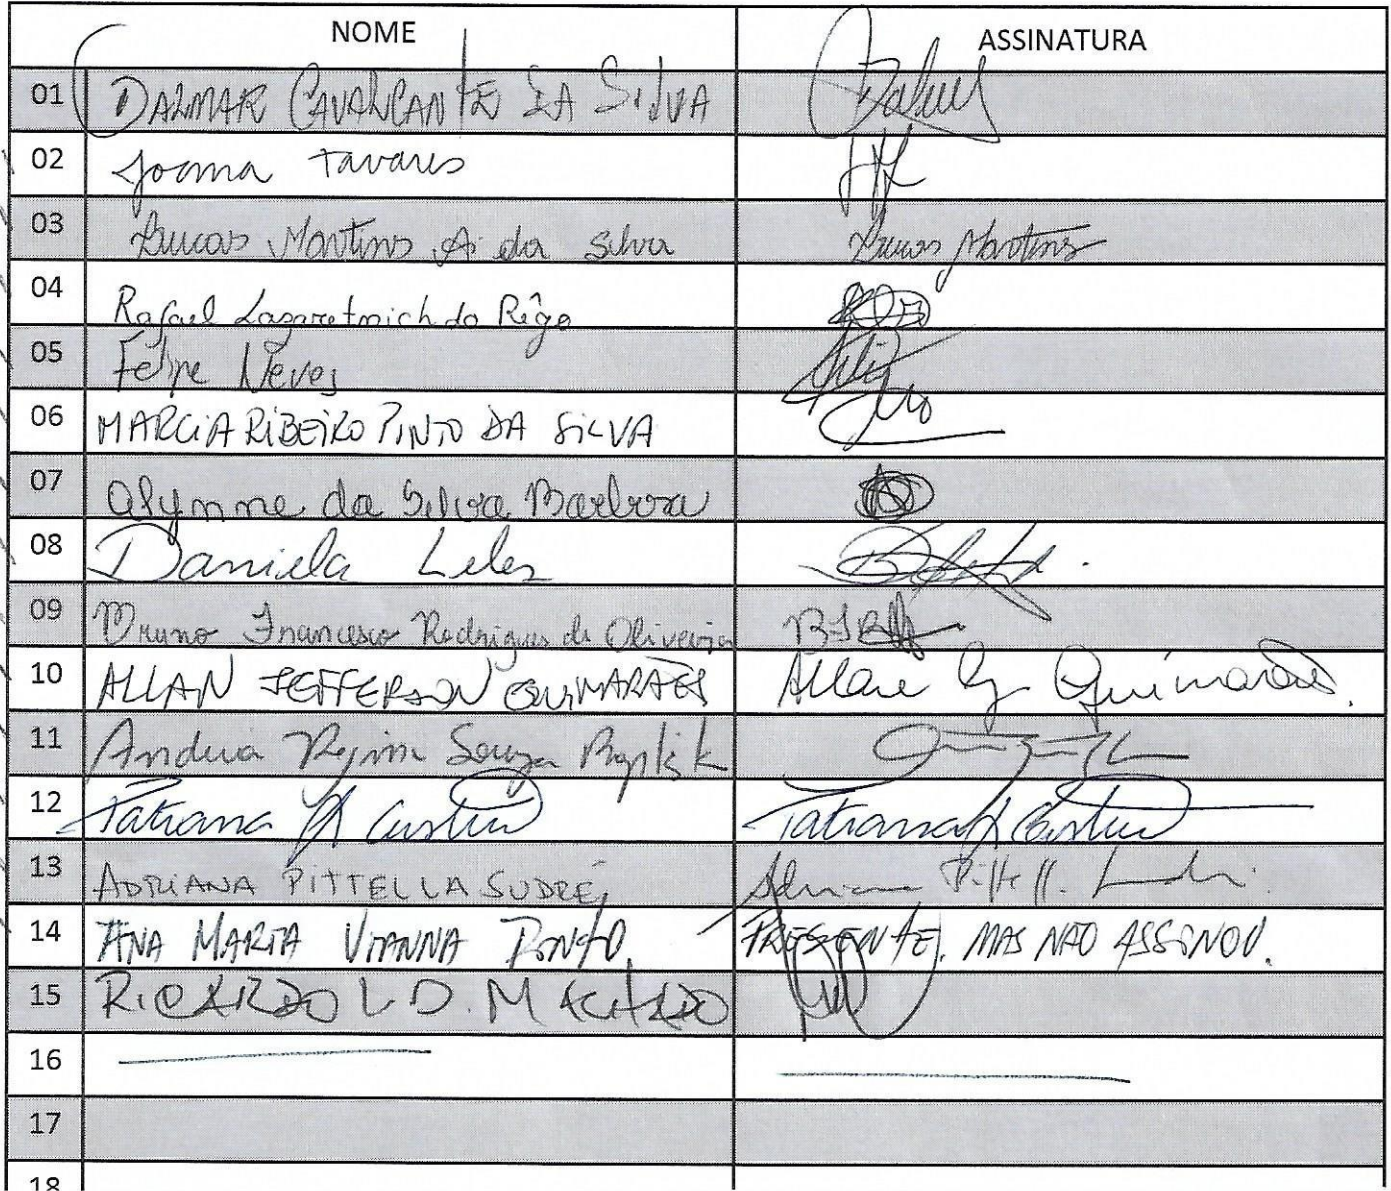 NOME ASSINATURA
01 DALMAR CAVALCANTE DA SILVA
02 Joana Tavares
03 Lucas Martins A. da Silva Lucas Martins
04 Rafael Lazaretmich do Rêgo
05 Felipe Neves
06 MARCIA RIBEIRO PINTO DA SILVA
07 Alynne da Silva Barbosa
08 Daniela Leles
09 Bruno Francesco Rodrigues de Oliveira
10 ALLAN JEFFERSON GUIMARÃES Allan J Guimarães.
11 Andreia Regina Souza
12 Tatiana Castro Tatiana Castro
13 ADRIANA PITTELLA SUDRÉ Adriana Pittell.
14 ANA MARIA VIANNA PINTO. PRESENTE, MAS NÃO ASSINOU.
15 RICARDO L D. MACHADO
16
17
18